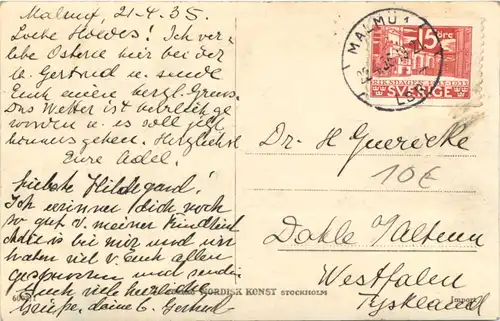 Malmö, 21.4.35.
Liebe Howes! Ich ver-
lebe Ostern hier bei der
lb. Gertrud u. sende
Euch einen herzl. Gruss.
Das Wetter ist herrlich ge
worden u. es soll jetzt
gehen. Herzlichst
Eure Adel.
Liebste Hildegard!
Ich erinner dich noch
so gut v. meiner Kindheit
ist bei mir und wir
haben viel v. Euch allen
gesprochen und senden
Euch viele herzliche
Grüsse, deine Gertrud
MALMÖ 1
15 ÖRE
RIKSDAGEN 1435 1935
SVERIGE
Dr. H Guericke
10€
Dahle i/Altena
Westfalen
Tyskland
NORDISK KONST STOCKHOLM
Import